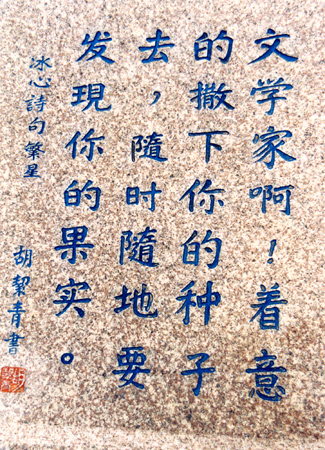 文学家啊！着意
的撒下你的种子
去，隨时隨地要
发現你的果实。
冰心詩句繁星
胡絜青書